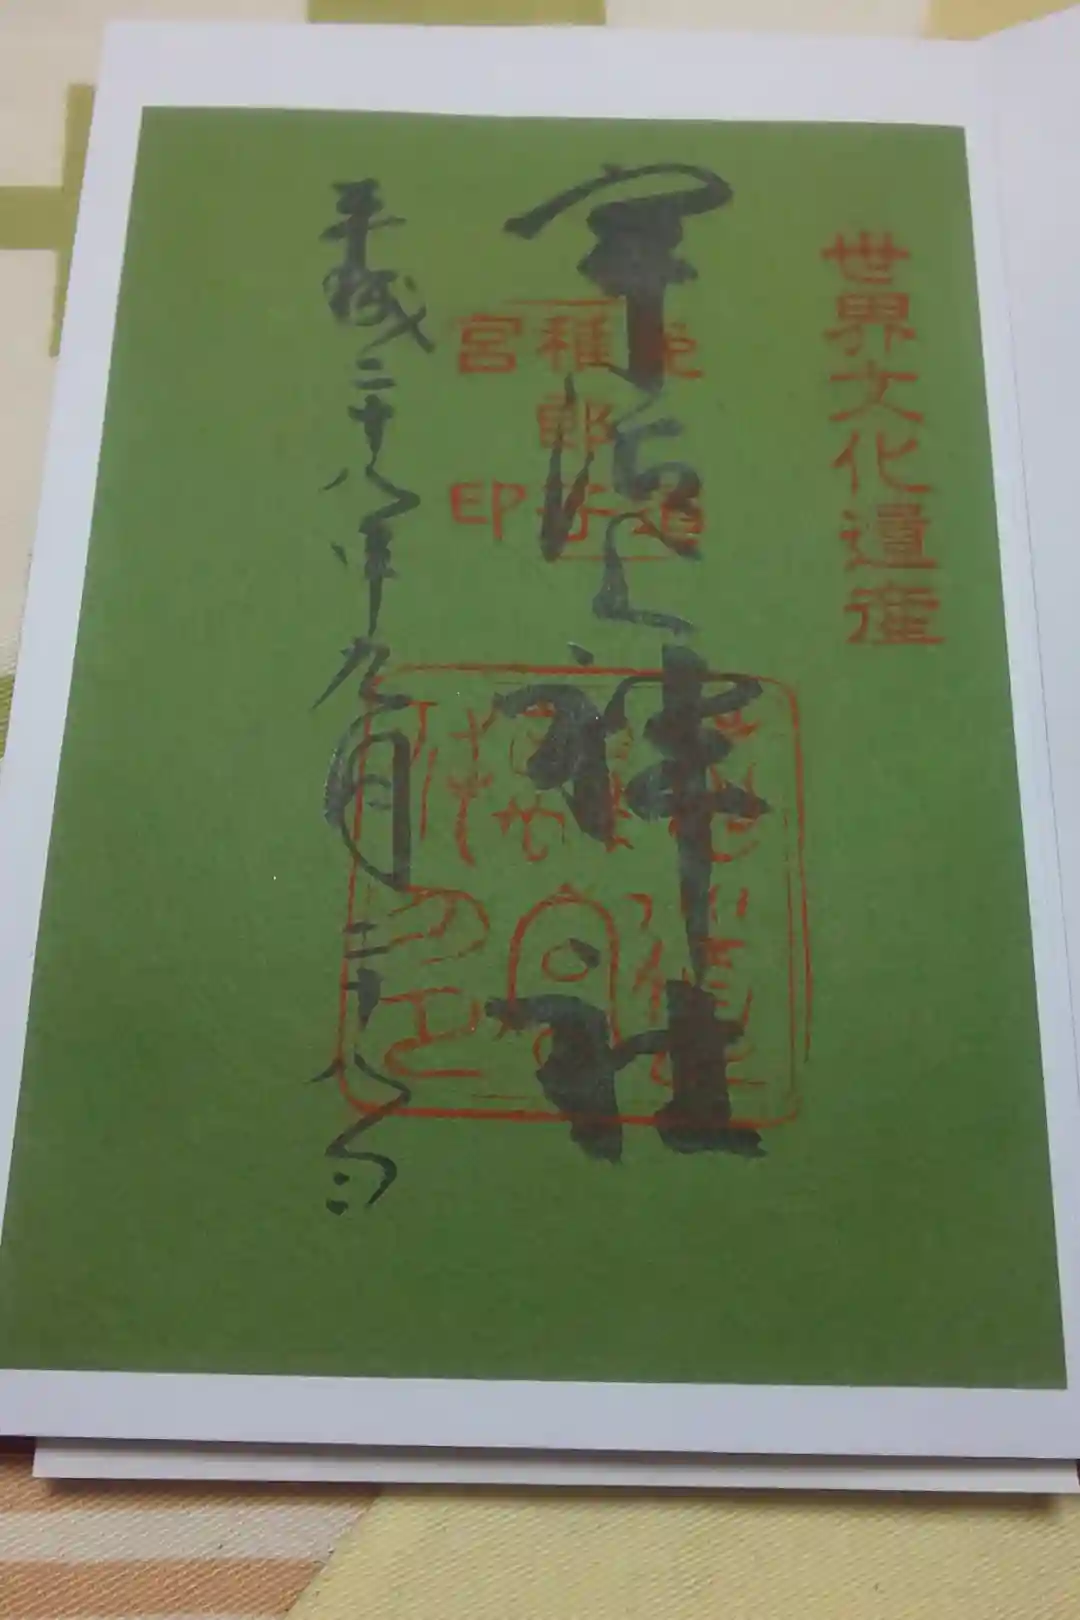 世界文化遺産
宇治上神社
菟道
稚郎子
宮印
平成二十八年九月二十八日